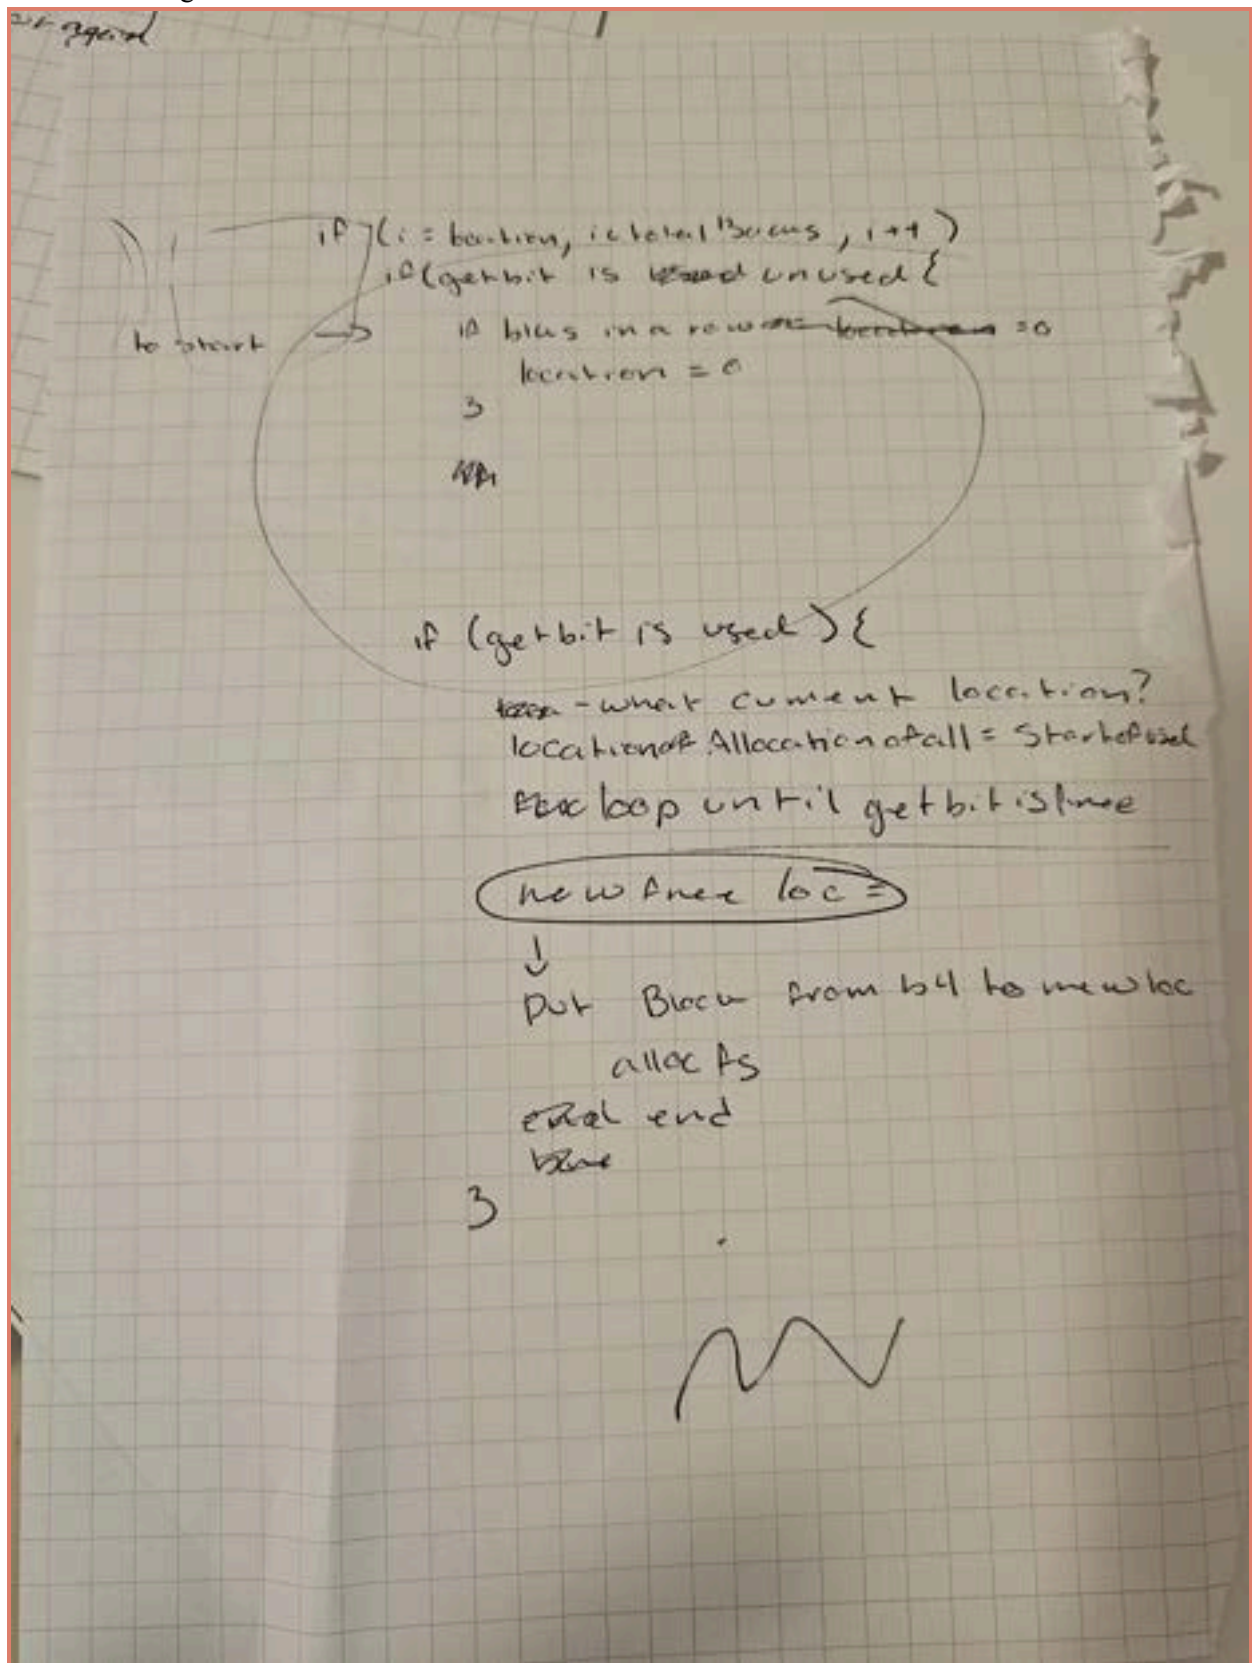 again
if (i = location, i < total Blocks, i++)
if (getbit is unused {
to start → if blcks in a row = 0
location = 0
}
if (getbit is used) {
- what current location?
locationof Allocationofall = Startofused
loop until getbit is free
new free loc =
↓
put Block from b4 to new loc
alloc fs
end
}